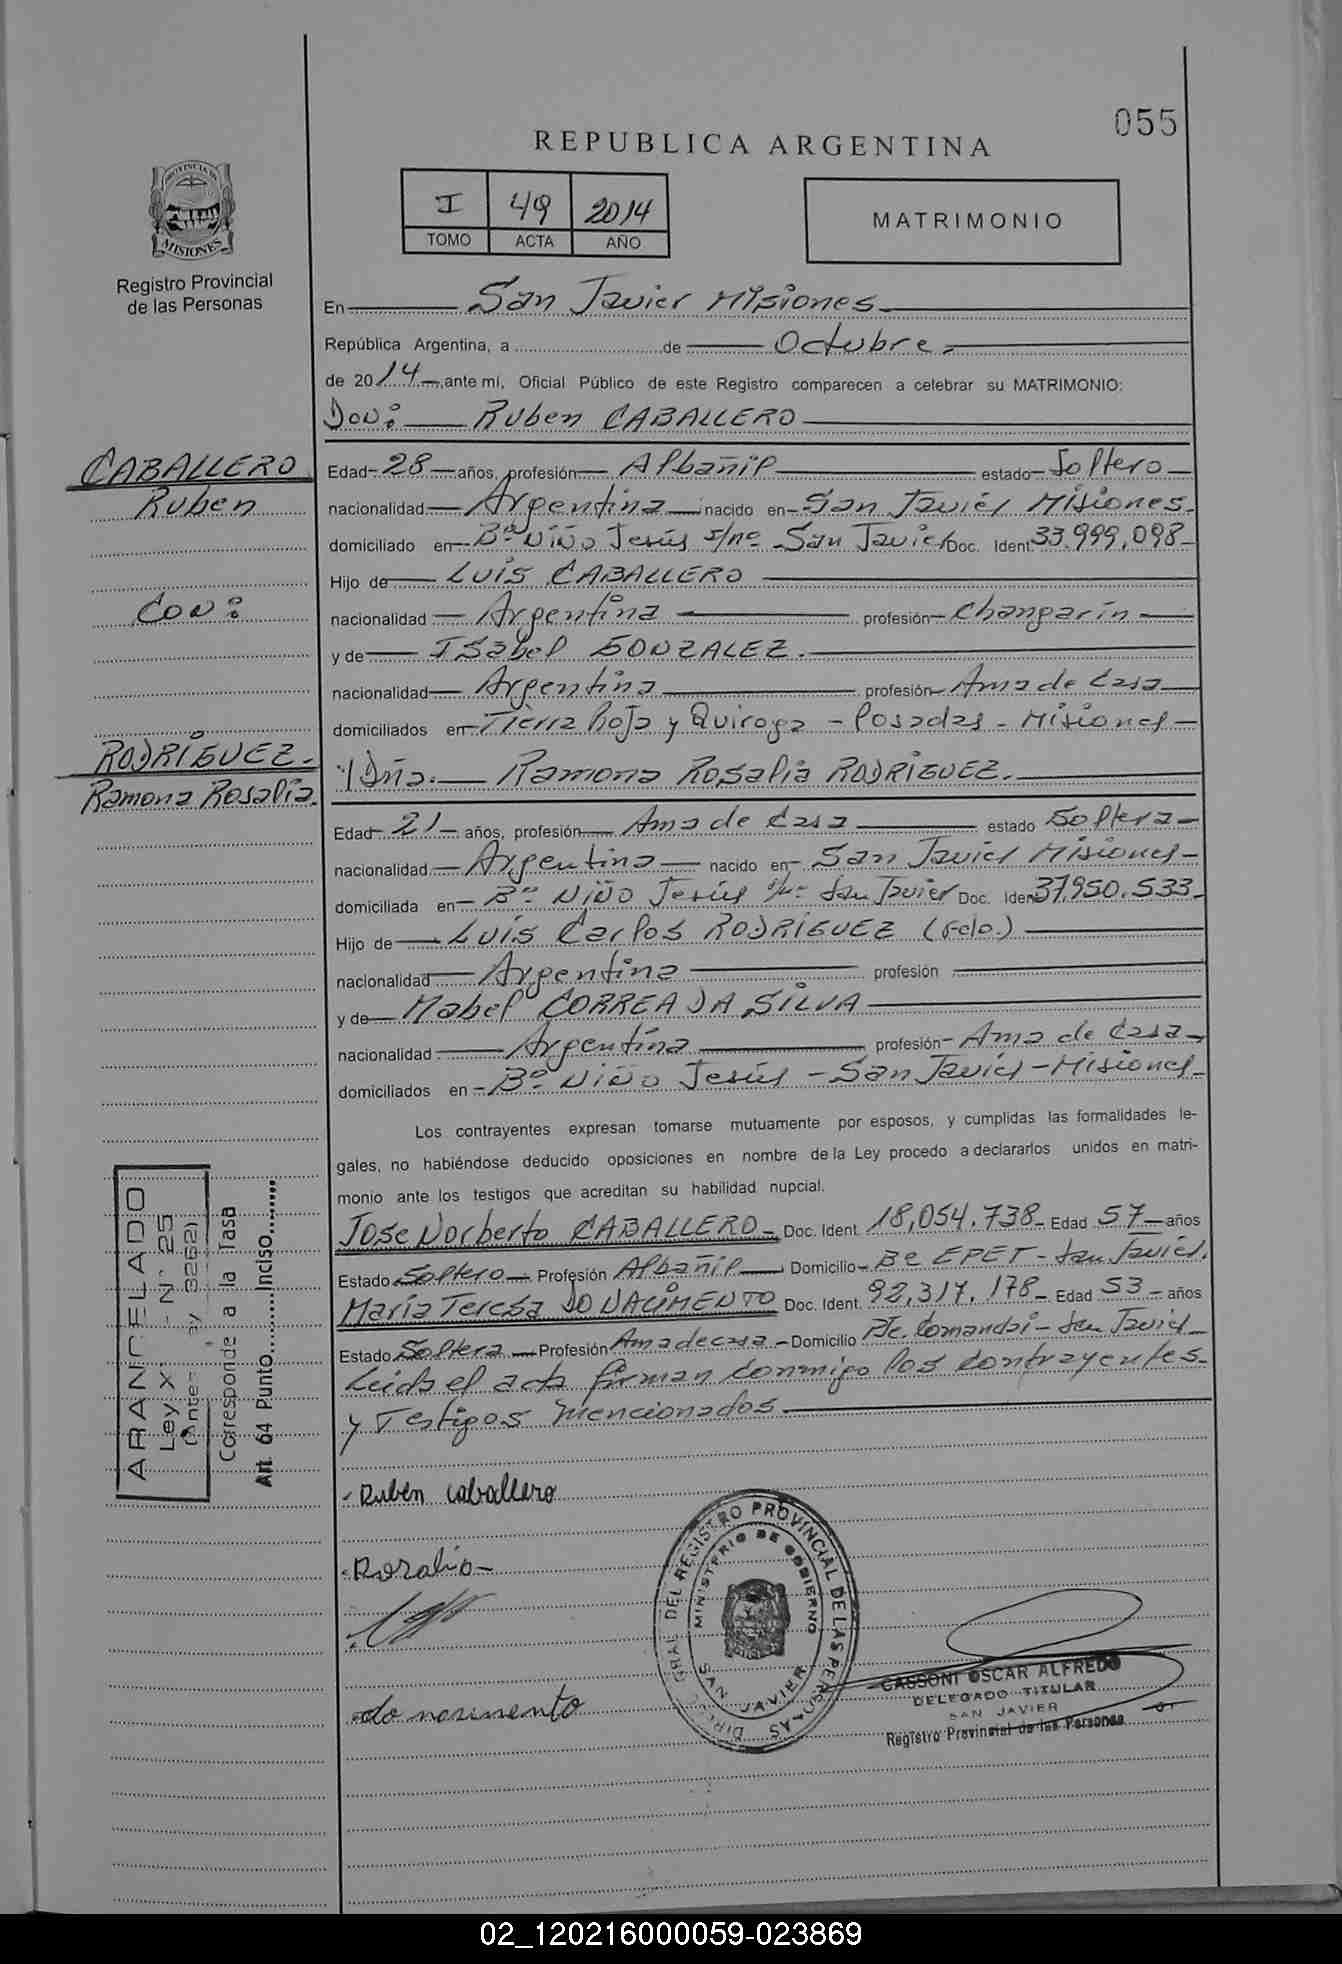 055
REPUBLICA ARGENTINA
I 49 2014
TOMO ACTA AÑO
MATRIMONIO
PROVINCIA DE
MISIONES
Registro Provincial
de las Personas
En San Javier Misiones
República Argentina, a de Octubre
de 2014, ante mi, Oficial Público de este Registro comparecen a celebrar su MATRIMONIO:
Don: Ruben CABALLERO
CABALLERO
Ruben
Con:
RODRIGUEZ
Ramona Rosalia
Edad 28 años, profesión Albañil estado Soltero
nacionalidad Argentina nacido en San Javier Misiones
domiciliado en Bº Niño Jesús s/nº San Javier Doc. Ident. 33.999.098
Hijo de Luis CABALLERO
nacionalidad Argentina profesión Changarin
y de Isabel GONZALEZ.
nacionalidad Argentina profesión Ama de Casa
domiciliados en Tierra Roja y Quiroga - Posadas - Misiones
y Dña. Ramona Rosalia RODRIGUEZ.
Edad 21 años, profesión Ama de Casa estado Soltera
nacionalidad Argentina nacido en San Javier Misiones
domiciliada en Bº Niño Jesús s/nº San Javier Doc. Iden 37.950.533
Hijo de Luis Carlos RODRIGUEZ (Fdo.)
nacionalidad Argentina profesión
y de Mabel CORREA DA SILVA
nacionalidad Argentina profesión Ama de Casa
domiciliados en Bº Niño Jesús - San Javier - Misiones
Los contrayentes expresan tomarse mutuamente por esposos, y cumplidas las formalidades le-
gales, no habiéndose deducido oposiciones en nombre de la Ley procedo a declararlos unidos en matri-
monio ante los testigos que acreditan su habilidad nupcial.
Jose Norberto CABALLERO Doc. Ident. 18,054.738 Edad 57 años
Estado Soltero Profesión Albañil Domicilio Bº EPET - San Javier.
Maria Teresa DO NACIMENTO Doc. Ident. 92,317.178 Edad 53 años
Estado Soltera Profesión Ama de casa Domicilio Pje. Comandaí - San Javier
Leida el acta firman conmigo los contrayentes
y Testigos mencionados
ARANCELADO
Ley X - Nº 25
(Ante Ley 3262)
Corresponde a la Tasa
Art. 64 Punto Inciso
Rubén caballero
Rosalia
do nasimento
DIREC. GRAL. DEL REGISTRO PROVINCIAL DE LAS PERSONAS
MINISTERIO DE GOBIERNO
SAN JAVIER
CASSONI OSCAR ALFREDO
DELEGADO TITULAR
SAN JAVIER
Registro Provincial de las Personas
02_120216000059-023869